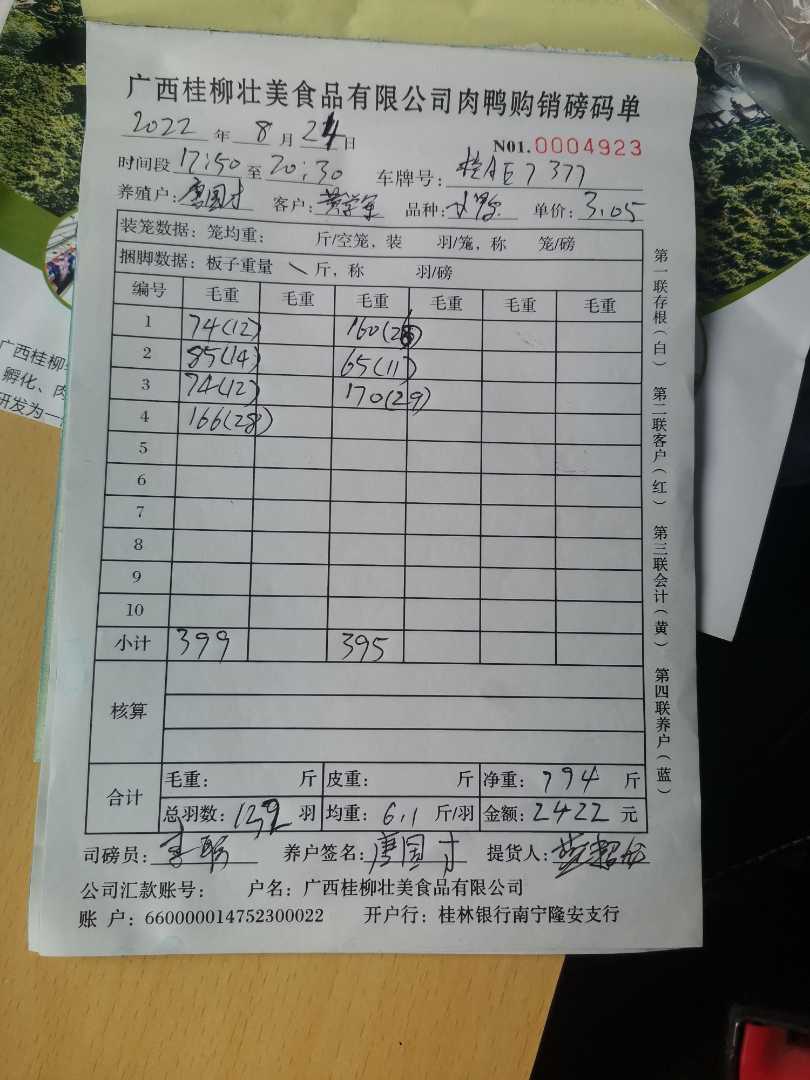 广西桂柳壮美食品有限公司肉鸭购销磅码单
2022 年 8 月 24 日 N01.0004923
时间段 17:50 至 20:30 车牌号: 桂AE7377
养殖户: 唐国才 客户: 品种: 单价: 3.05
装笼数据: 笼均重: 斤/空笼, 装 羽/笼, 称 笼/磅
捆脚数据: 板子重量 \ 斤, 称 羽/磅
编号 毛重 毛重 毛重 毛重 毛重 毛重
1 74(12) 160(26)
2 85(14) 65(11)
3 74(12) 170(29)
4 166(28)
5
6
7
8
9
10
小计 399 395
核算
合计 毛重: 斤 皮重: 斤 净重: 794 斤
总羽数: 132 羽 均重: 6.1 斤/羽 金额: 2422 元
司磅员: 养户签名: 唐国才 提货人:
公司汇款账号: 户名: 广西桂柳壮美食品有限公司
账 户: 660000014752300022 开户行: 桂林银行南宁隆安支行
第一联存根(白) 第二联客户(红) 第三联会计(黄) 第四联养户(蓝)
广西桂柳
孵化、肉
研发为一